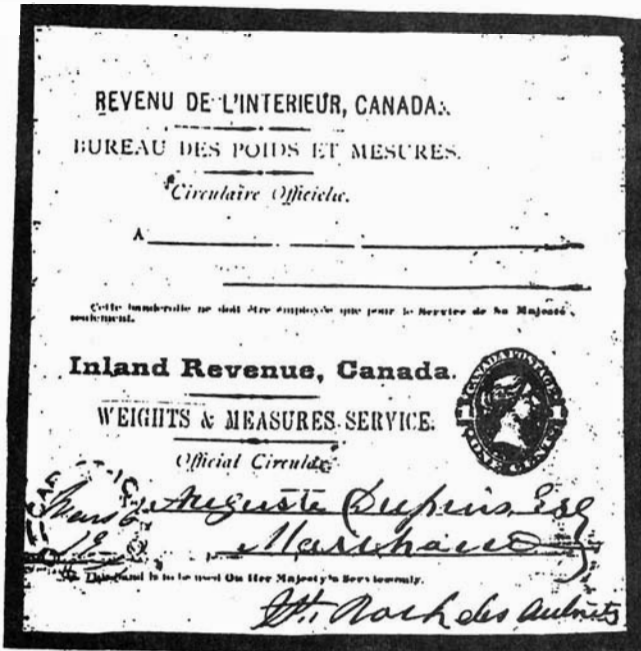 REVENU DE L'INTERIEUR, CANADA.
BUREAU DES POIDS ET MESURES.
Circulaire Officielle.
A
Cette banderolle ne doit être employée que pour le Service de Sa Majesté seulement.
Inland Revenue, Canada.
CANADA POSTAGE
ONE CENT
WEIGHTS & MEASURES SERVICE.
Official Circular
Auguste Dupuis Esq
Marchand
This Band is to be used On Her Majesty's Service only.
St. Roch des Aulnets